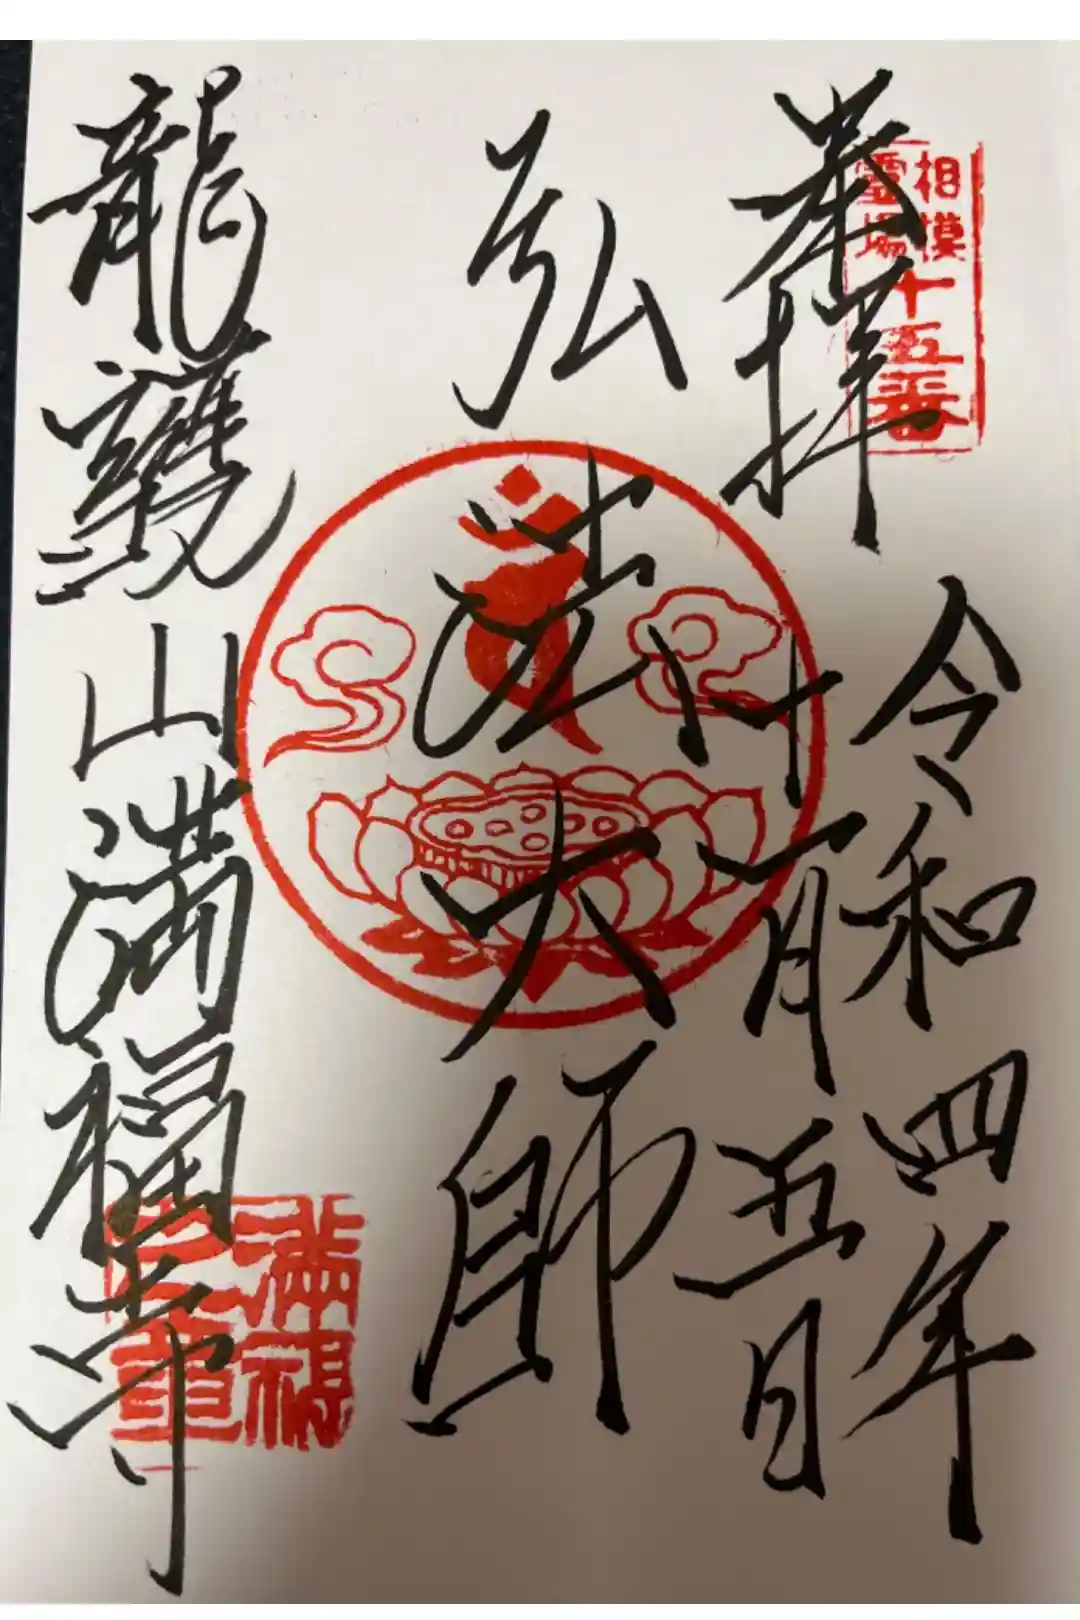 奉拝
相模
霊場
十五番
令和四年
十一月五日
弘法大師
龍護山満福寺
満福